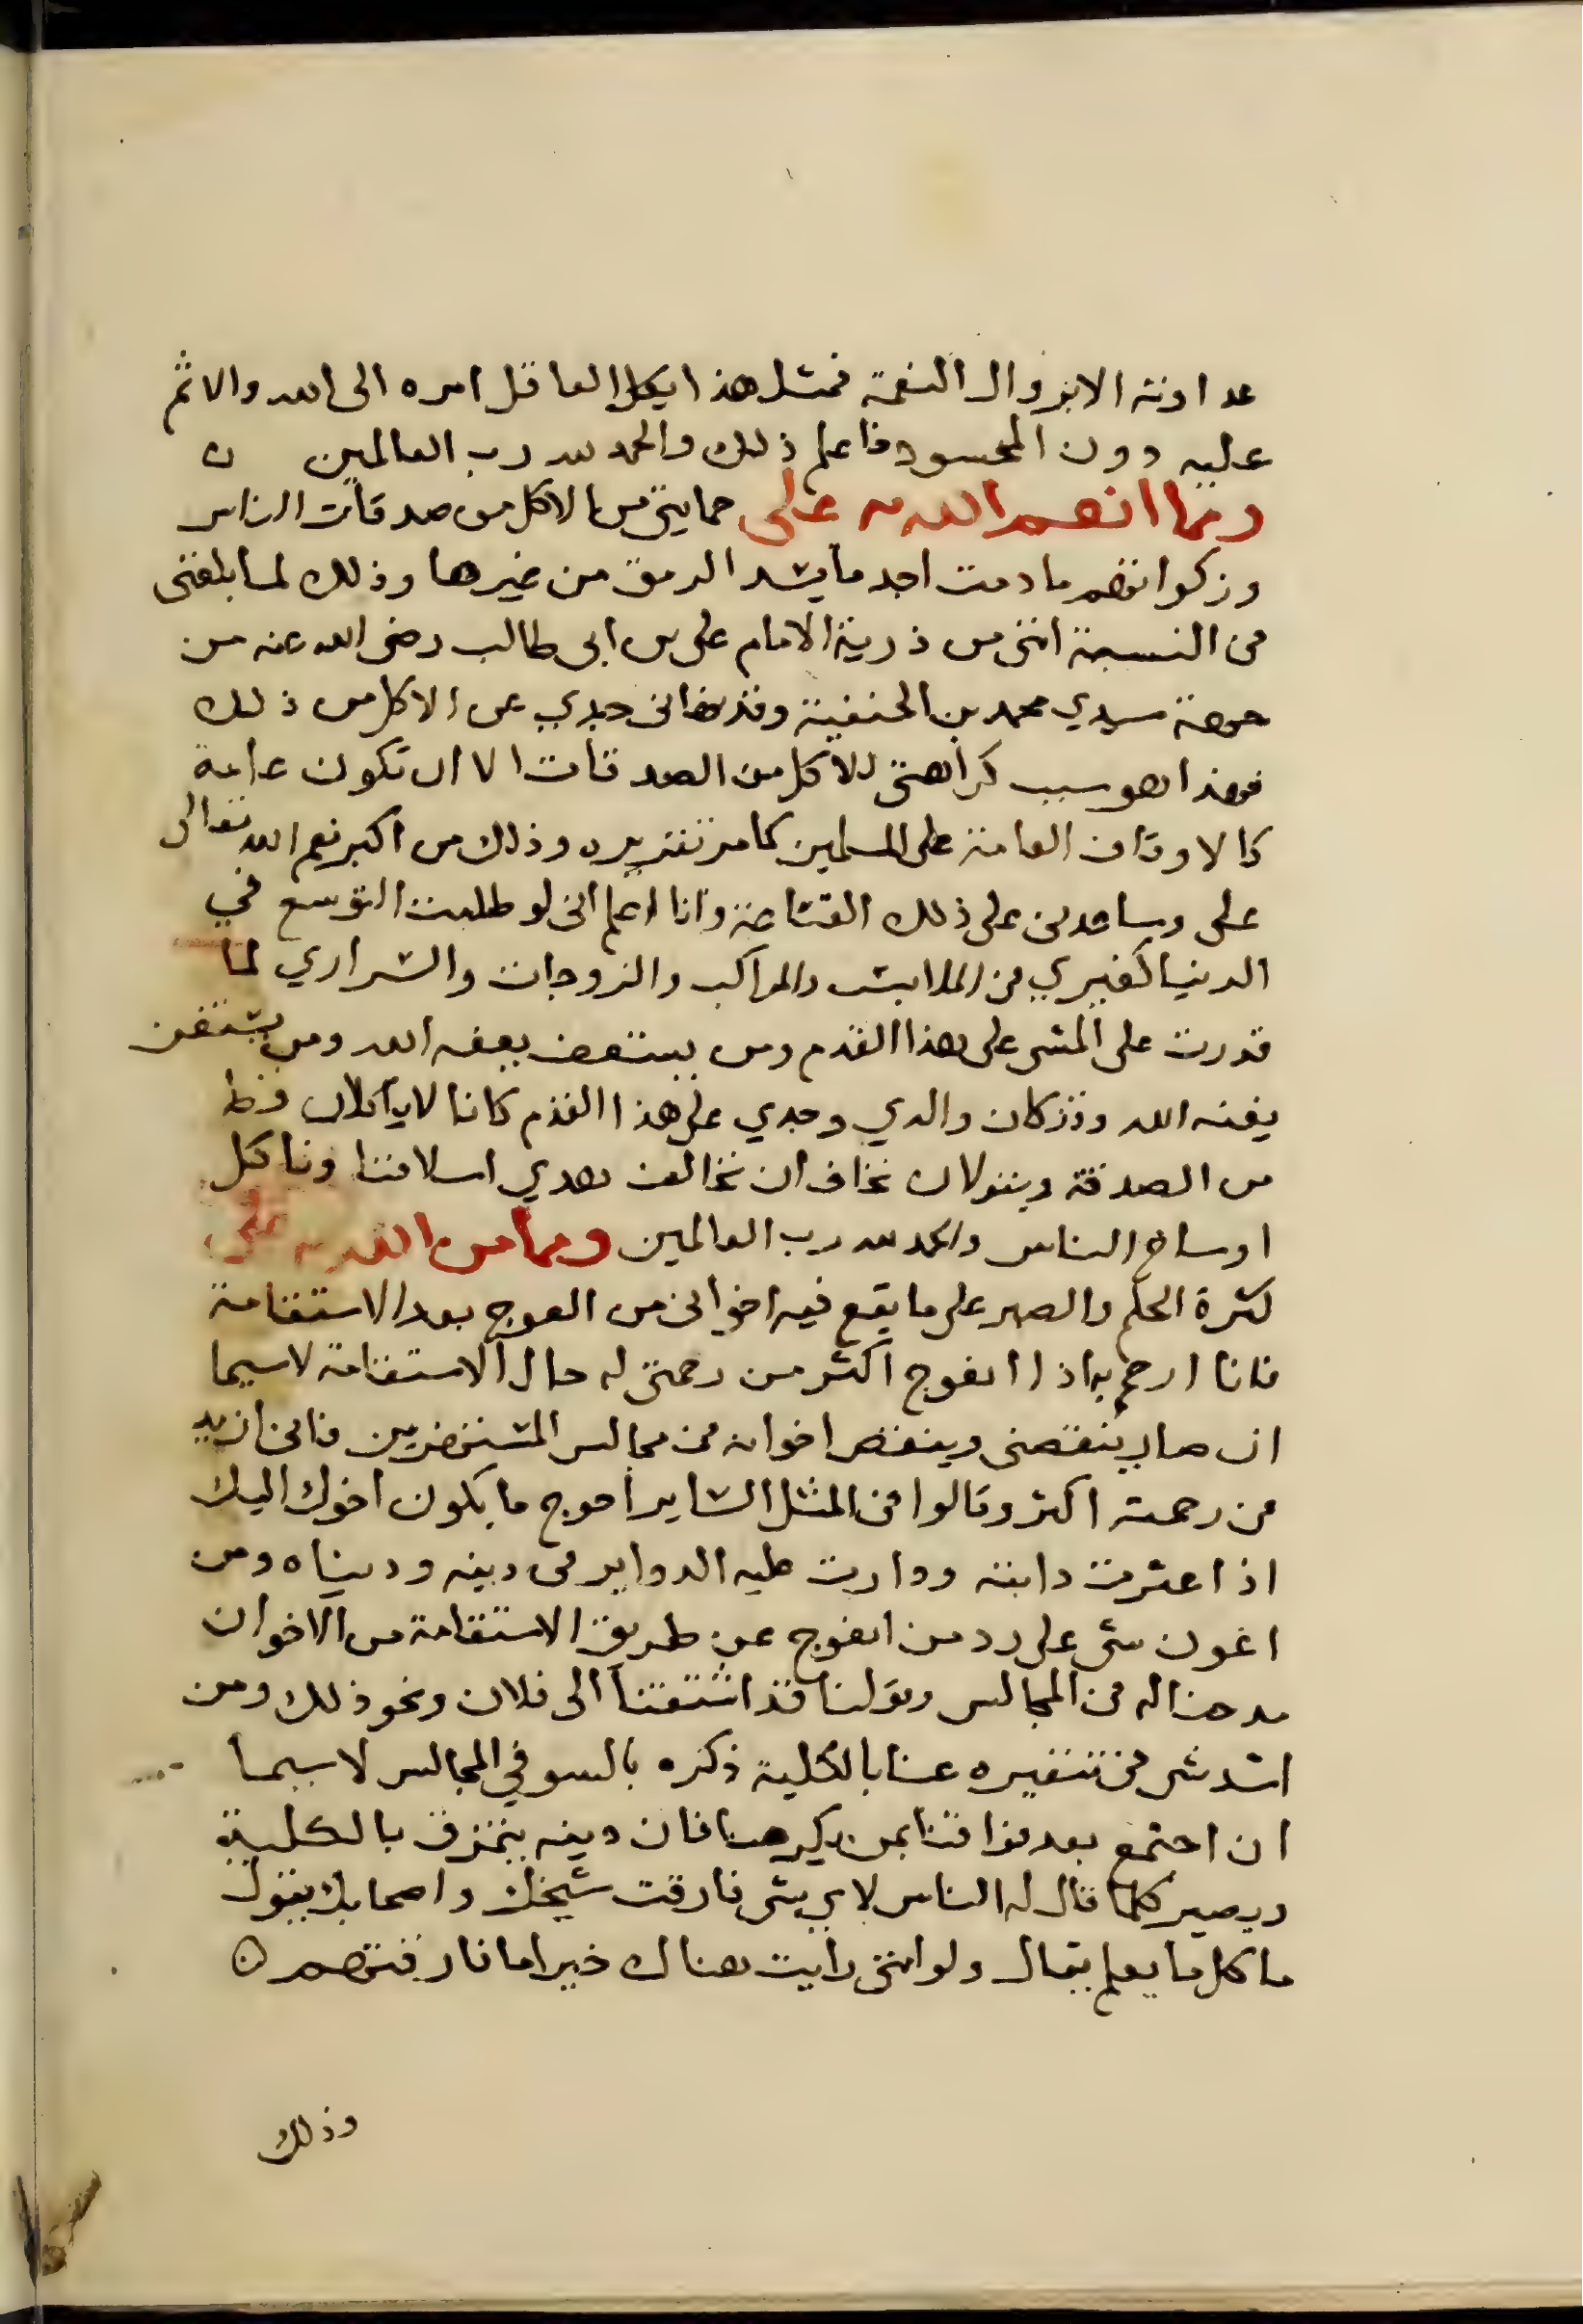 عداوته الا بزوال النعمة فمثل هذا يكل العاقل امره الى الله والاثم
عليه دون المحسود فاعلم ذلك والحمد لله رب العالمين ن
ومما انعم الله به على حمايتى من الاكل من صدقات الناس
وزكواتهم ما دمت اجد ما يسد الرمق من غيرها وذلك لما بلغنى
من النسبة اننى من ذرية الامام على بن ابى طالب رضى الله عنه من
جهة سيدي محمد بن الحنفية وقد نهانى جدي عن الاكل من ذلك
فهذا هو سبب كراهتى للاكل من الصدقات الا ان تكون عامة
كالاوقاف العامة على المسلمين كما مر تقريره وذلك من اكبر نعم الله تعالى
على وساعدنى على ذلك القناعة وانا اعلم انى لو طلبت التوسع في
الدنيا كغيري من الملابس والمراكب والزوجات والسراري لما
قدرت على المشى على هذا القدم ومن يستعفف يعفه الله ومن يستغن
يغنه الله وقد كان والدي وجدي على هذا القدم كانا لا ياكلان قط
من الصدقة ويقولان نخاف ان نخالف هدي اسلافنا وناكل
اوساخ الناس والحمد لله رب العالمين ومما من الله به على
كثرة الحلم والصبر على ما يقع فيه اخوانى من العوج بعد الاستقامة
فانا ارحم به اذا انعوج اكثر من رحمتى له حال الاستقامة لا سيما
ان صار ينقصنى وينقص اخوانه من مجالس المستهزيين فانى ازيد
من رحمته اكثر وقالوا فى المثل الساير احوج ما يكون اخوك اليك
اذا عثرت دابته ودارت عليه الدواير فى دينه ودنياه ومن
اعون شى على رد من انعوج عن طريق الاستقامة من الاخوان
مدحنا له فى المجالس وقولنا قد اشتقنا الى فلان ونحو ذلك ومن
اشد شى فى تنفيره عنا بالكلية ذكره بالسو في المجالس لا سيما
ان اجتمع بعد فراقنا بمن يكرهنا فان دينه يتمزق بالكلية
ويصير كلما قال له الناس لاي شى فارقت شيخك واصحابك يقول
ما كل ما يعلم يقال ولو اننى رايت هناك خيرا ما فارقتهم ن
وذلك